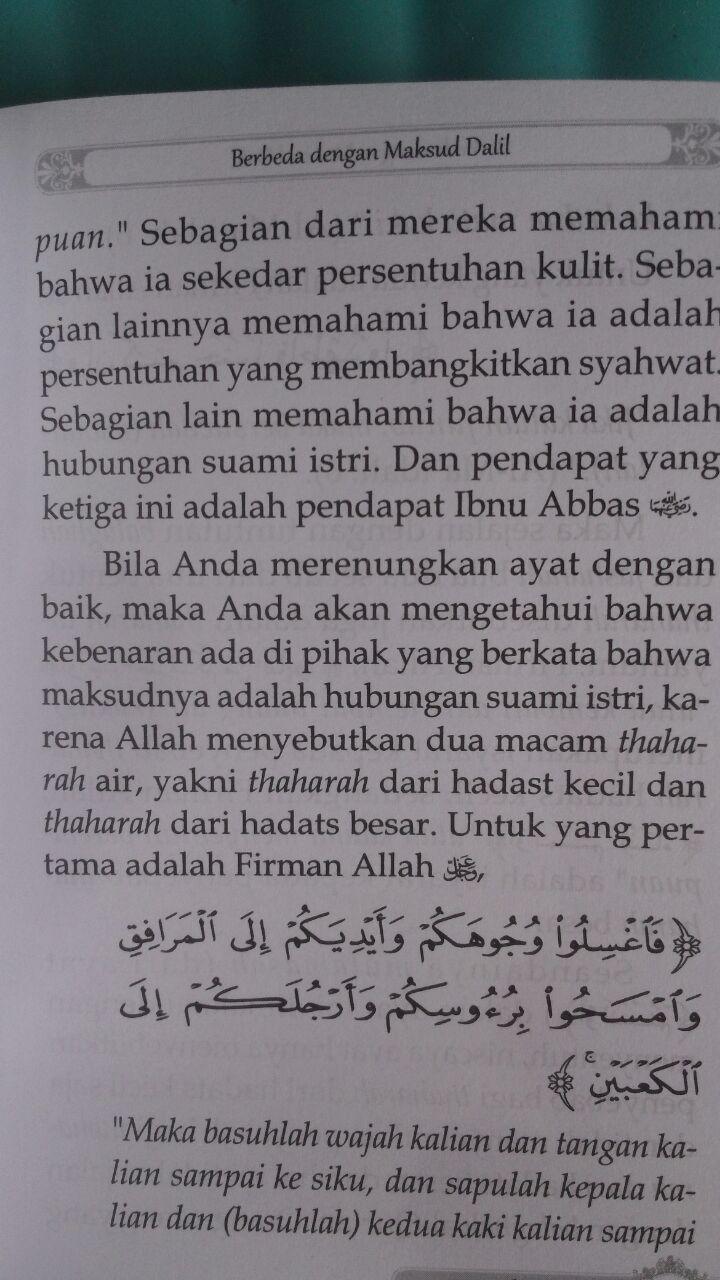 Berbeda dengan Maksud Dalil
puan." Sebagian dari mereka memahami
bahwa ia sekedar persentuhan kulit. Seba-
gian lainnya memahami bahwa ia adalah
persentuhan yang membangkitkan syahwat.
Sebagian lain memahami bahwa ia adalah
hubungan suami istri. Dan pendapat yang
ketiga ini adalah pendapat Ibnu Abbas .
Bila Anda merenungkan ayat dengan
baik, maka Anda akan mengetahui bahwa
kebenaran ada di pihak yang berkata bahwa
maksudnya adalah hubungan suami istri, ka-
rena Allah menyebutkan dua macam thaha-
rah air, yakni thaharah dari hadast kecil dan
thaharah dari hadats besar. Untuk yang per-
tama adalah Firman Allah ,
﴿فَٱغۡسِلُواْ وُجُوهَكُمۡ وَأَيۡدِيَكُمۡ إِلَى ٱلۡمَرَافِقِ
وَٱمۡسَحُواْ بِرُءُوسِكُمۡ وَأَرۡجُلَكُمۡ إِلَى
ٱلۡكَعۡبَيۡنِۚ﴾
"Maka basuhlah wajah kalian dan tangan ka-
lian sampai ke siku, dan sapulah kepala ka-
lian dan (basuhlah) kedua kaki kalian sampai